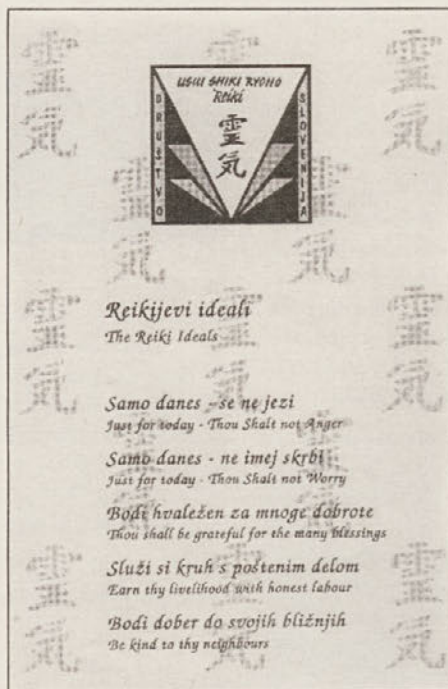 USUI SHIKI RYOHO
Reiki
靈
気
DRUŠTVO
SLOVENIJA
Reikijevi ideali
The Reiki Ideals
Samo danes - se ne jezi
Just for today - Thou Shalt not Anger
Samo danes - ne imej skrbi
Just for today - Thou Shalt not Worry
Bodi hvaležen za mnoge dobrote
Thou shall be grateful for the many blessings
Služi si kruh s poštenim delom
Earn thy livelihood with honest labour
Bodi dober do svojih bližnjih
Be kind to thy neighbours